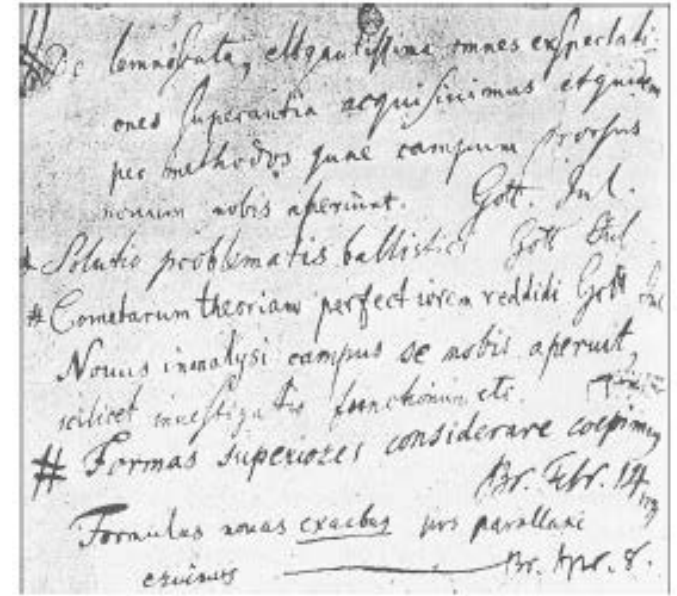 # De lemniscata, elegantissima omnes exspectati-
ones superantia acquisivimus et quidem
per methodos quae campum prorsus
novum nobis aperiunt. Gott. Jul.
* Solutio problematis ballistici Gott Jul.
# Cometarum theoriam perfectiorem reddidi Gott Jul
Novus in analysi campus se nobis aperuit,
scilicet investigatio functionum etc.
# Formas superiores considerare coepimus
Br. Febr. 14
Formulas novas exactas pro parallaxi
eruimus Br. Apr. 8.